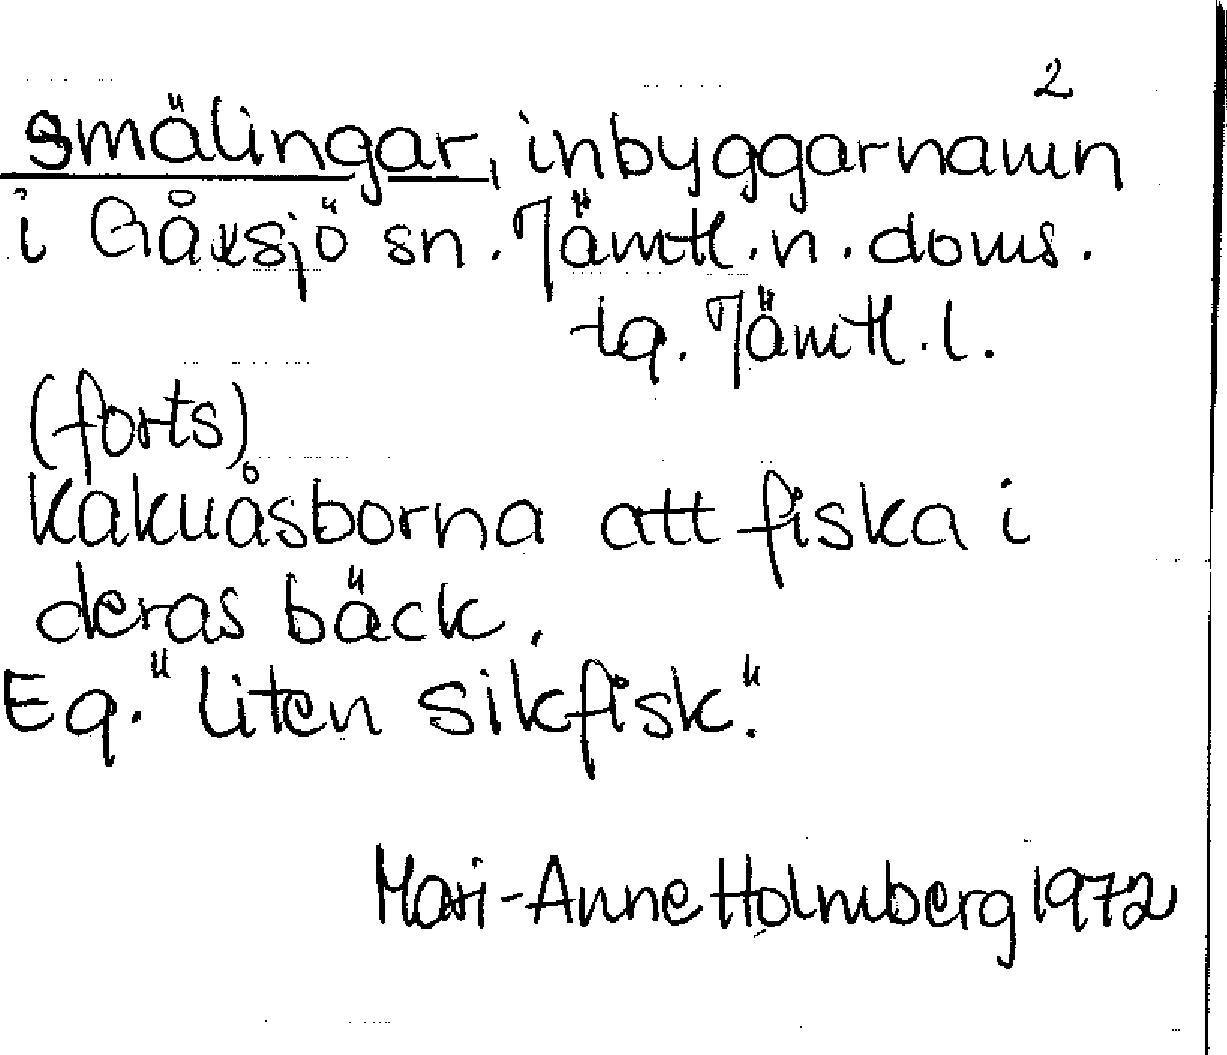 2
smälingar, inbyggarnamn
i Gåxsjö sn. Jämtl. n. doms.
tg. Jämtl. l.
(forts)
Kakuåsborna att fiska i
deras bäck.
Eg. "liten sikfisk".
Mari-Anne Holmberg 1972